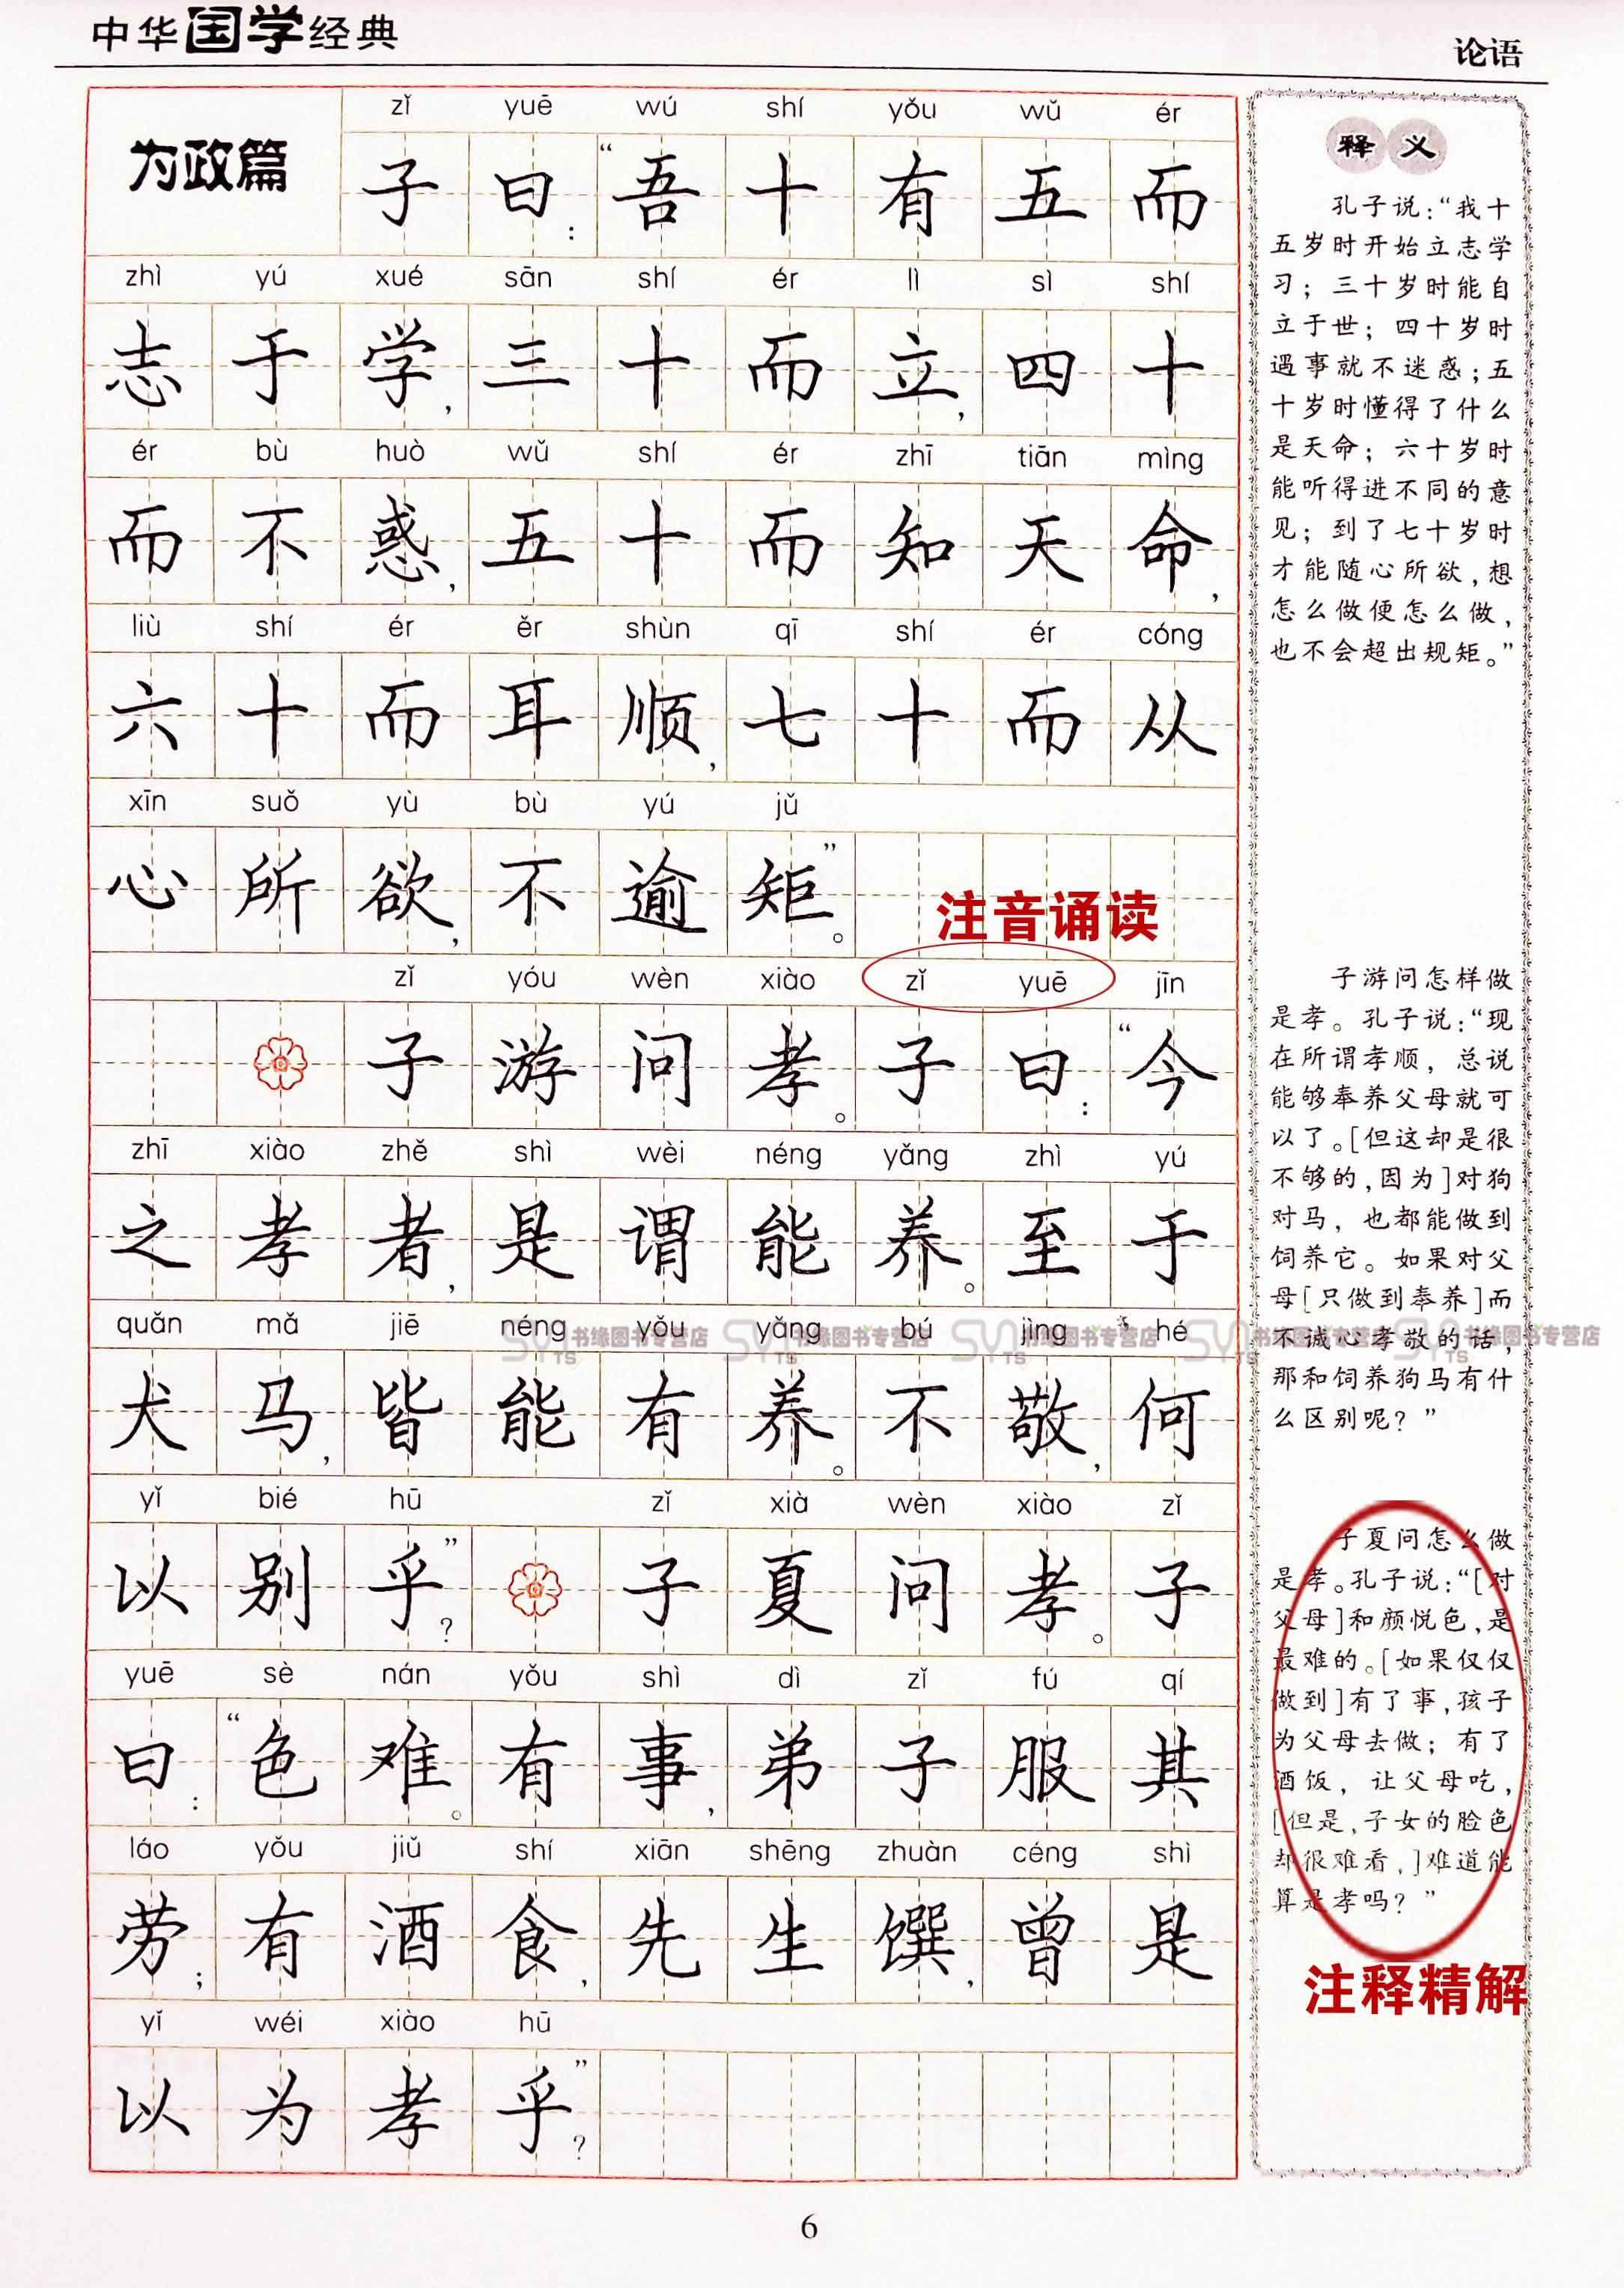 中华国学经典
论语
为政篇
zǐ yuē wú shí yǒu wǔ ér
子曰:“吾十有五而
zhì yú xué sān shí ér lì sì shí
志于学,三十而立,四十
ér bù huò wǔ shí ér zhī tiān mìng
而不惑,五十而知天命,
liù shí ér ěr shùn qī shí ér cóng
六十而耳顺,七十而从
xīn suǒ yù bù yú jǔ
心所欲,不逾矩。”
注音诵读
zǐ yóu wèn xiào zǐ yuē jīn
子游问孝。子曰:“今
zhī xiào zhě shì wèi néng yǎng zhì yú
之孝者,是谓能养。至于
quǎn mǎ jiē néng yǒu yǎng bú jìng hé
犬马,皆能有养。不敬,何
yǐ bié hū zǐ xià wèn xiào zǐ
以别乎?”子夏问孝。子
yuē sè nán yǒu shì dì zǐ fú qí
曰:“色难。有事,弟子服其
láo yǒu jiǔ shí xiān shēng zhuàn céng shì
劳;有酒食,先生馔,曾是
yǐ wéi xiào hū
以为孝乎?”
释义
孔子说:“我十
五岁时开始立志学
习;三十岁时能自
立于世;四十岁时
遇事就不迷惑;五
十岁时懂得了什么
是天命;六十岁时
能听得进不同的意
见;到了七十岁时
才能随心所欲,想
怎么做便怎么做,
也不会超出规矩。”
子游问怎样做
是孝。孔子说:“现
在所谓孝顺,总说
能够奉养父母就可
以了。[但这却是很
不够的,因为]对狗
对马,也都能做到
饲养它。如果对父
母[只做到奉养]而
不诚心孝敬的话,
那和饲养狗马有什
么区别呢?”
子夏问怎么做
是孝。孔子说:“[对
父母]和颜悦色,是
最难的。[如果仅仅
做到]有了事,孩子
为父母去做;有了
酒饭,让父母吃,
[但是,子女的脸色
却很难看,]难道能
算是孝吗?”
注释精解
书缘图书专营店 书缘图书专营店 书缘图书专营店 书缘图书专营店 书缘图书专营店
6